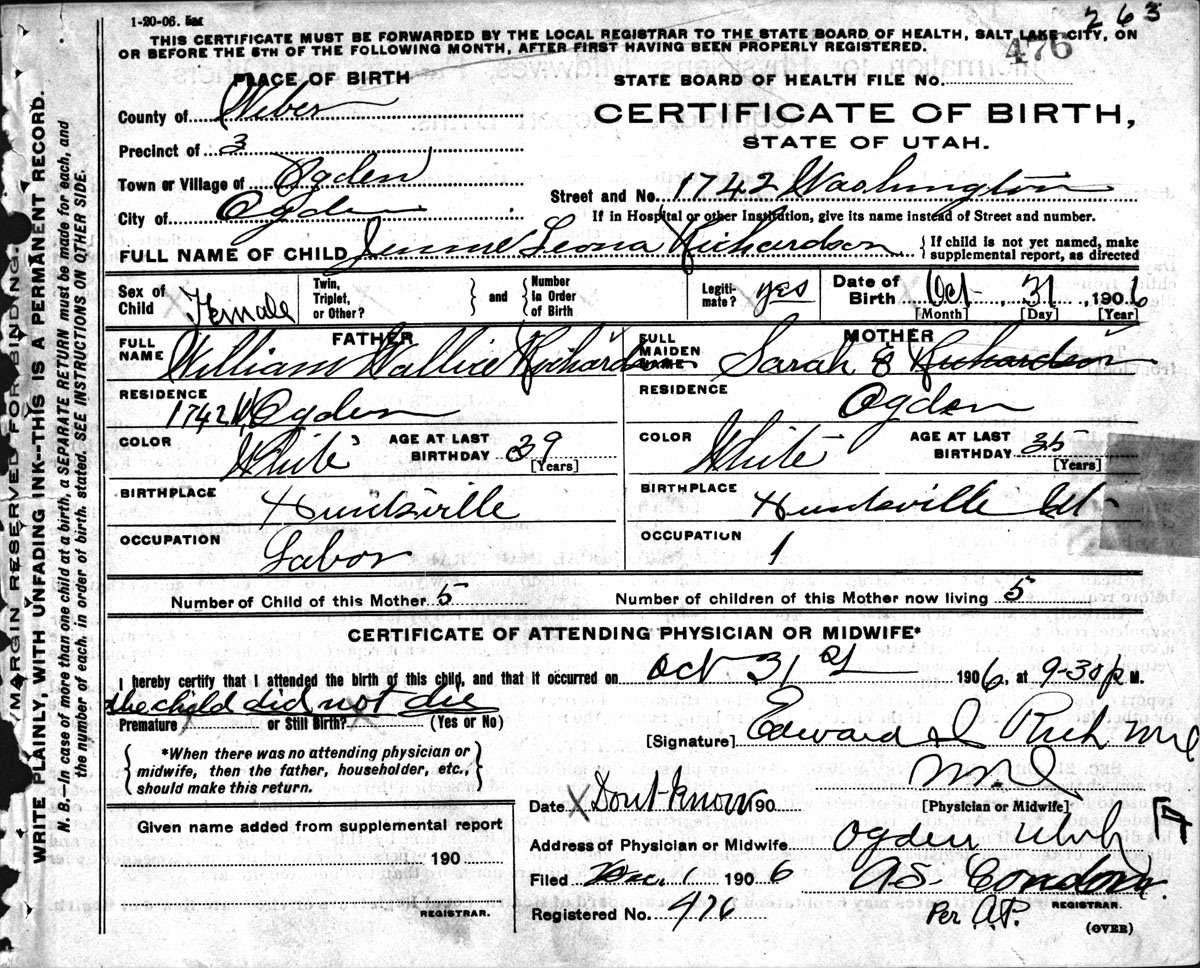 263
1-20-06.
THIS CERTIFICATE MUST BE FORWARDED BY THE LOCAL REGISTRAR TO THE STATE BOARD OF HEALTH, SALT LAKE CITY, ON
OR BEFORE THE 5TH OF THE FOLLOWING MONTH, AFTER FIRST HAVING BEEN PROPERLY REGISTERED.
476
PLACE OF BIRTH
STATE BOARD OF HEALTH FILE No.
County of Weber
CERTIFICATE OF BIRTH,
STATE OF UTAH.
Precinct of 3
Town or Village of Ogden
Street and No. 1742 Washington
City of Ogden
If in Hospital or other Institution, give its name instead of Street and number.
FULL NAME OF CHILD Jennie Leona Richardson { If child is not yet named, make
supplemental report, as directed
Sex of Child Female
Twin, Triplet, or Other? } and { Number in Order of Birth
Legitimate? yes
Date of Birth Oct, 31, 1906
[Month] [Day] [Year]
FATHER
FULL NAME William Wallice Richardson
MOTHER
FULL MAIDEN NAME Sarah E Richardson
RESIDENCE 1742 W Ogden
RESIDENCE Ogden
COLOR White AGE AT LAST BIRTHDAY 39 [Years]
COLOR White AGE AT LAST BIRTHDAY 35 [Years]
BIRTHPLACE Huntsville
BIRTHPLACE Huntsville Ut
OCCUPATION Labor
OCCUPATION 1
Number of Child of this Mother 5 Number of children of this Mother now living 5
CERTIFICATE OF ATTENDING PHYSICIAN OR MIDWIFE*
I hereby certify that I attended the birth of this child, and that it occurred on Oct 31st 1906, at 9-30 P. M.
the child did not die
Premature X or Still Birth? X (Yes or No)
[Signature] Edward I Rich MD
*When there was no attending physician or
midwife, then the father, householder, etc.,
should make this return.
MD
[Physician or Midwife]
Date X Dont Know 190
Given name added from supplemental report
Address of Physician or Midwife Ogden Utah
190
Filed Dec. 1 1906 A.S. Condon.
REGISTRAR.
REGISTRAR.
Registered No. 476 Per A.P.
(OVER)
MARGIN RESERVED FOR BINDING.
WRITE PLAINLY WITH UNFADING INK—THIS IS A PERMANENT RECORD.
N. B.—In case of more than one child at a birth, a SEPARATE RETURN must be made for each, and
the number of each, in order of birth, stated. SEE INSTRUCTIONS ON OTHER SIDE.